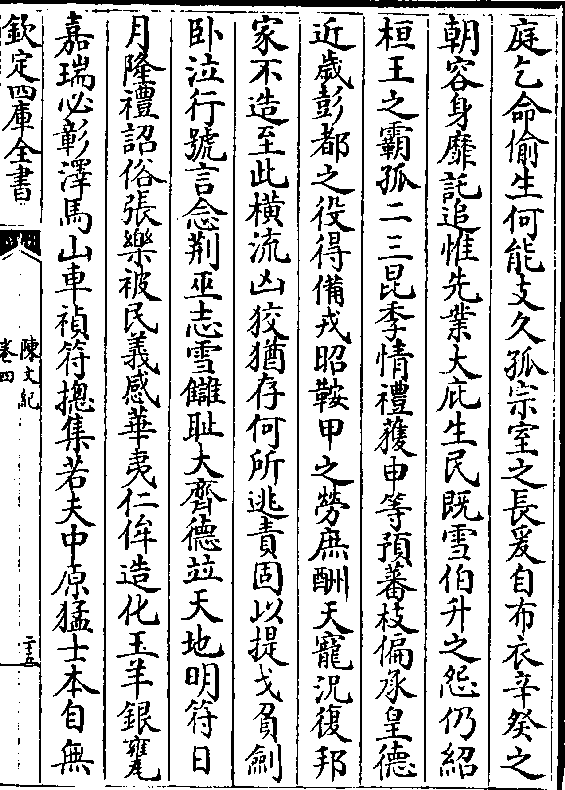 庭乞命偷生何能支久孤宗室之長爰自布衣辛癸之
朝容身靡託追惟先業大庇生民既雪伯升之怨仍紹
桓王之霸孤二三昆季情禮獲申等預蕃枝偏承皇德
近歲彭都之役得備戎昭鞍甲之勞庶酬天寵況復邦
家不造至此橫流凶狡猶存何所逃責固以提戈負劍
卧泣行號言念荆巫志雪讎耻大齊德竝天地明符日
月隆禮詔俗張樂被民義感華夷仁侔造化玉羊銀甕
嘉瑞必彰澤馬山車禎符摠集若夫中原猛士本自無
欽定四庫全書
陳文紀
卷四
二五